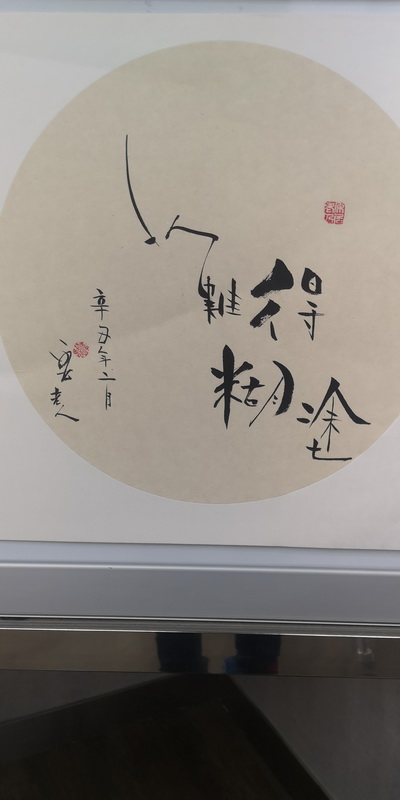 難得
糊塗
辛丑年二月
老人